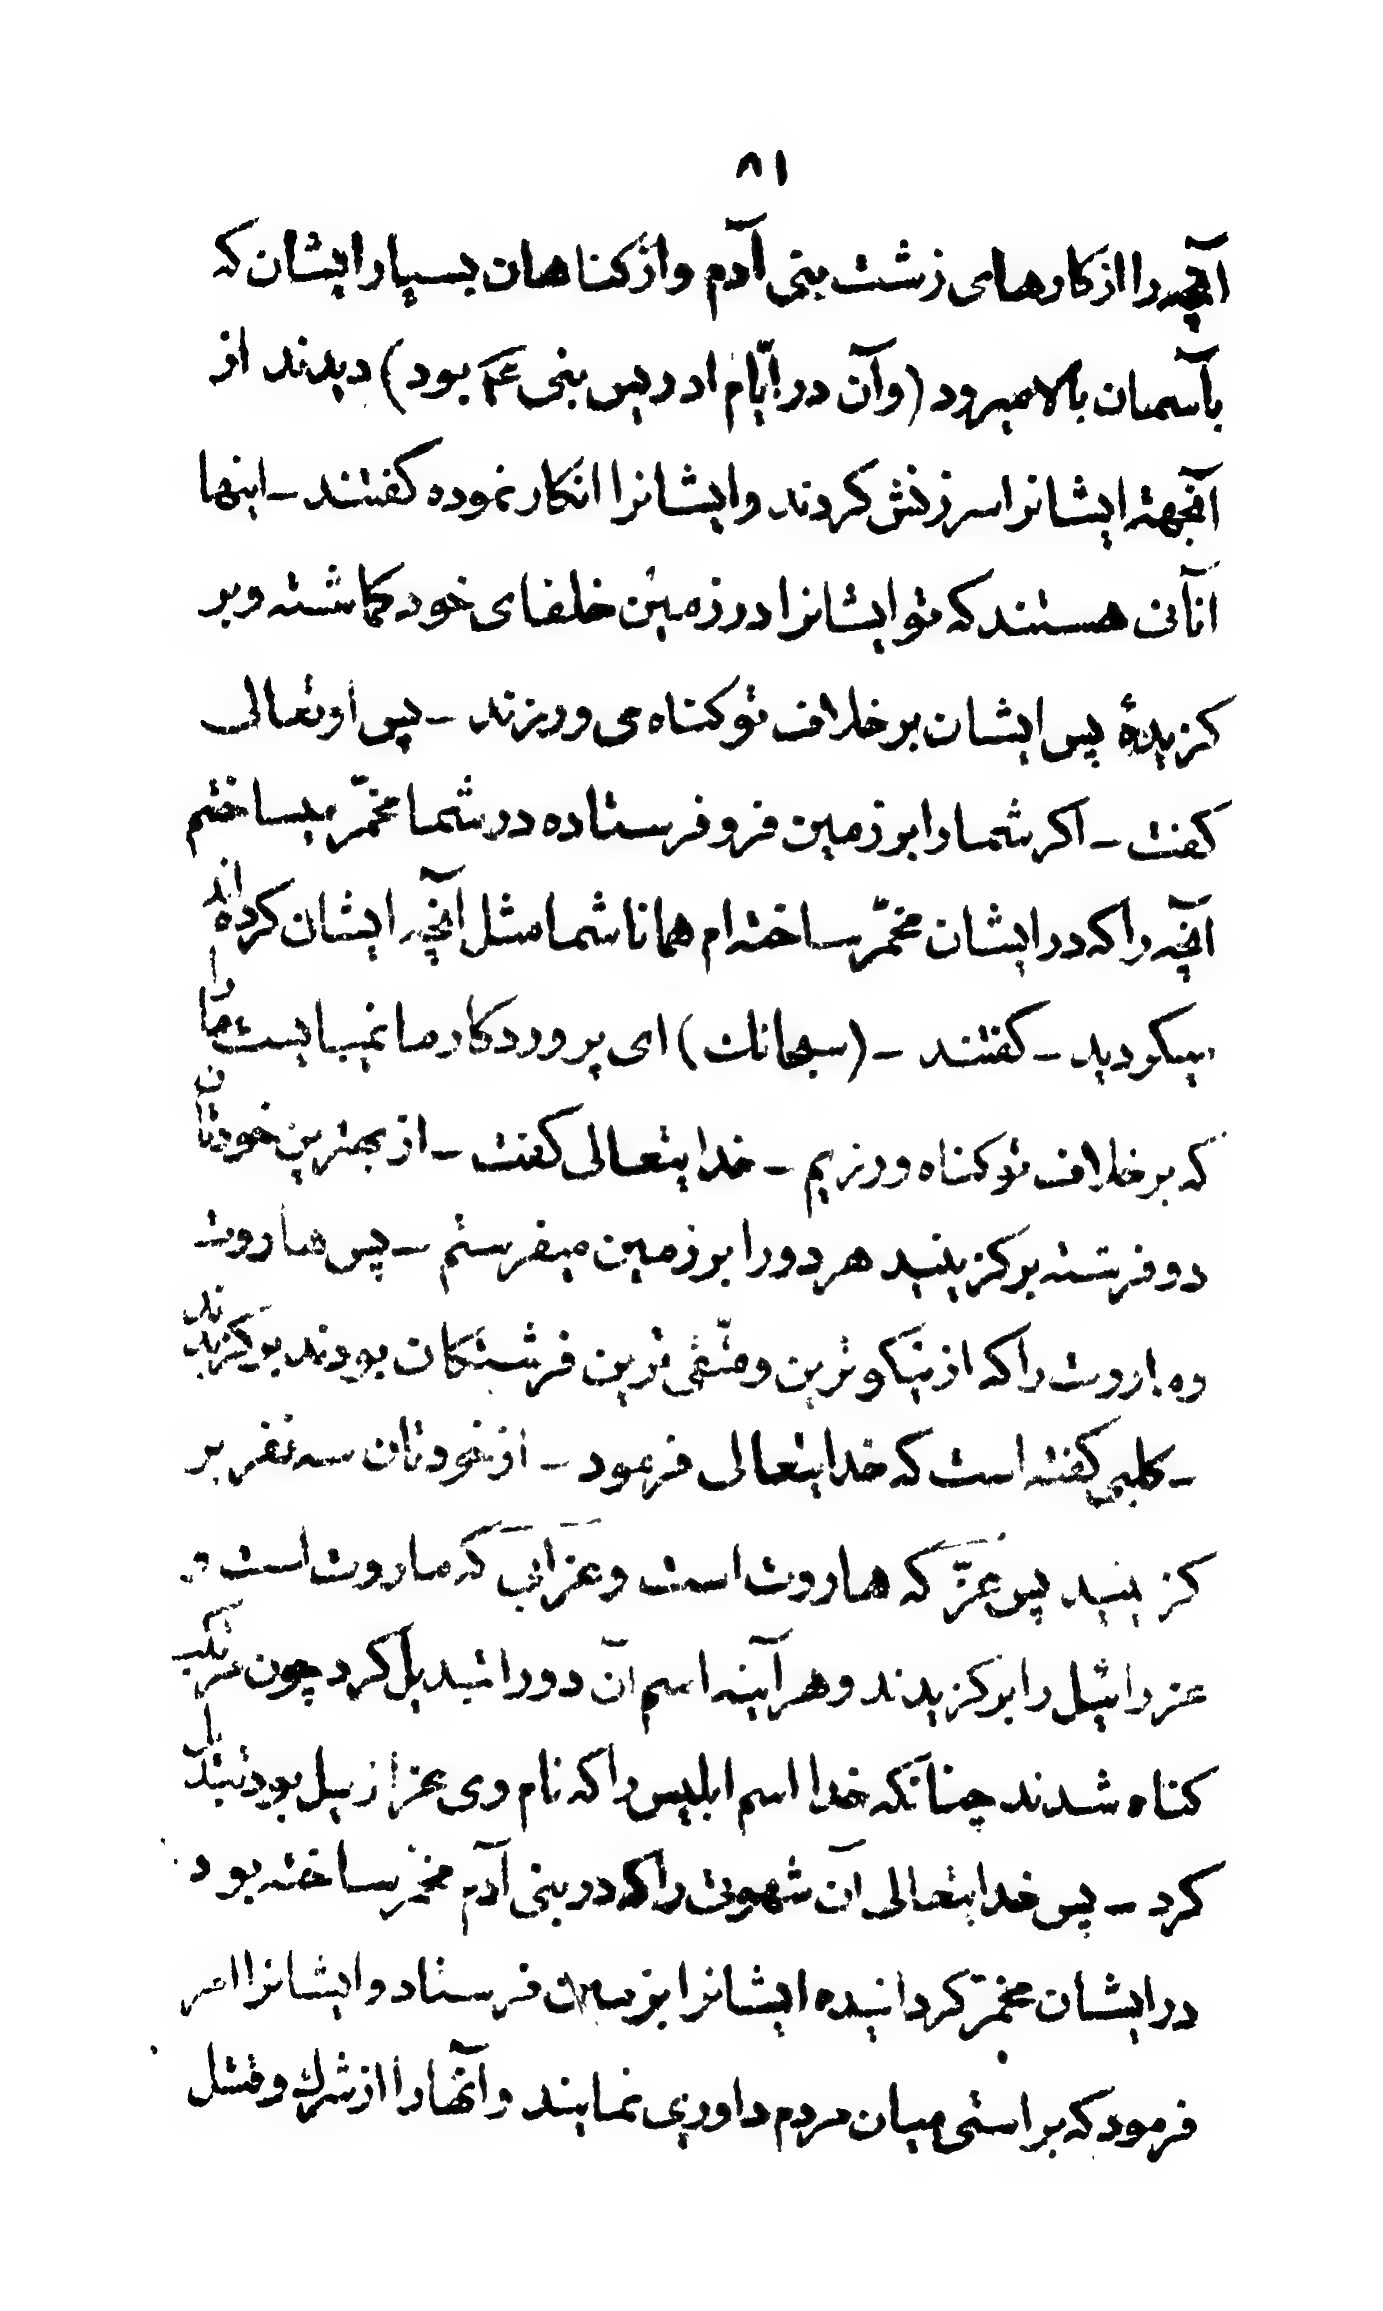 ٨١
آنچه را از كارهاى زشت بنى آدم واز كناهان بسيار ايشان كه
بآسمان بالا ميرود (وآن در ايّام ادريس بنى عم بود) ديدند از
آنجهته ايشانرا سرزنش كردند وايشانرا انكار نموده كفتند - اينها
آنانى هستند كه تو ايشانرا در زمين خلفاى خود كماشته وبر
كزيدهٔ پس ايشان بر خلاف تو كناه مى ورزند - پس او تعالى
كفت - اكر شما را بر زمين فرو فرستاده در شما مخمّر ميساختم
آنچه را كه در ايشان مخمّر ساخته ام همانا شما مثل آنچه ايشان كرده اند
ميكرديد - كفتند - (سبحانك) اى پروردكار ما نميبايست ما را
كه بر خلاف تو كناه ورزيم - خدايتعالى كفت - از بهترين خودتان
دو فرشته بر كزينيد هر دو را بر زمين ميفرستم - پس هاروت
وماروت را كه از نيكو ترين ومتّقى ترين فرشتكان بودند بر كزيدند
- كلبى كفته است كه خدايتعالى فرمود - از خودتان سه نفر بر
كزينيد پس عزّ كه هاروت است وعزابى كه ماروت است و
عزرائيل را بر كزيدند وهر آينه اسم آن دو را تبديل كرد چون مرتكب
كناه شدند چنانكه خدا اسم ابليس را كه نام وى عزازيل بود تبديل
كرد - پس خدايتعالى آن شهوت را كه در بنى آدم مخمّر ساخته بود
در ايشان مخمّر كردانيده ايشانرا بزمين فرستاد وايشانرا امر
فرمود كه براستى ميان مردم داورى نمايند وآنها را از شرك وقتل